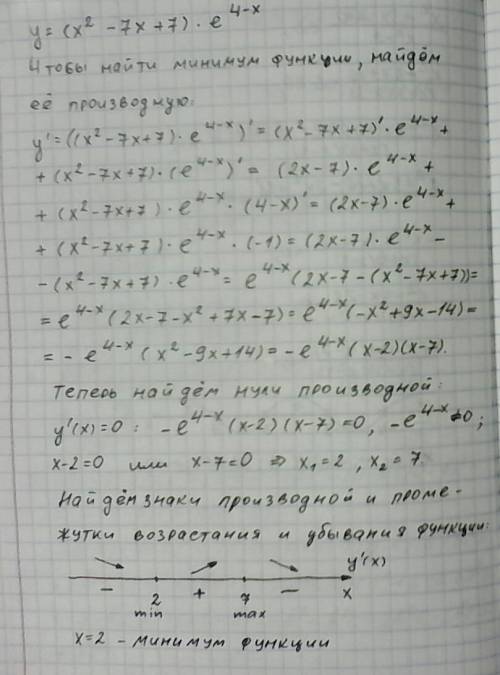 y = (x² - 7x + 7) · e^(4-x)
Чтобы найти минимум функции, найдём
её производную:
y' = ((x² - 7x + 7) · e^(4-x))' = (x² - 7x + 7)' · e^(4-x) +
+ (x² - 7x + 7) · (e^(4-x))' = (2x - 7) · e^(4-x) +
+ (x² - 7x + 7) · e^(4-x) · (4-x)' = (2x - 7) · e^(4-x) +
+ (x² - 7x + 7) · e^(4-x) · (-1) = (2x - 7) · e^(4-x) -
- (x² - 7x + 7) · e^(4-x) = e^(4-x) (2x - 7 - (x² - 7x + 7)) =
= e^(4-x) (2x - 7 - x² + 7x - 7) = e^(4-x) (-x² + 9x - 14) =
= - e^(4-x) (x² - 9x + 14) = - e^(4-x) (x-2)(x-7).
Теперь найдём нули производной:
y'(x) = 0 : - e^(4-x) (x-2)(x-7) = 0, - e^(4-x) ≠ 0;
x-2=0 или x-7=0 ⇒ x₁ = 2, x₂ = 7
Найдём знаки производной и проме-
жутки возрастания и убывания функции:
y'(x)
- 2 + 7 - x
min max
x=2 - минимум функции